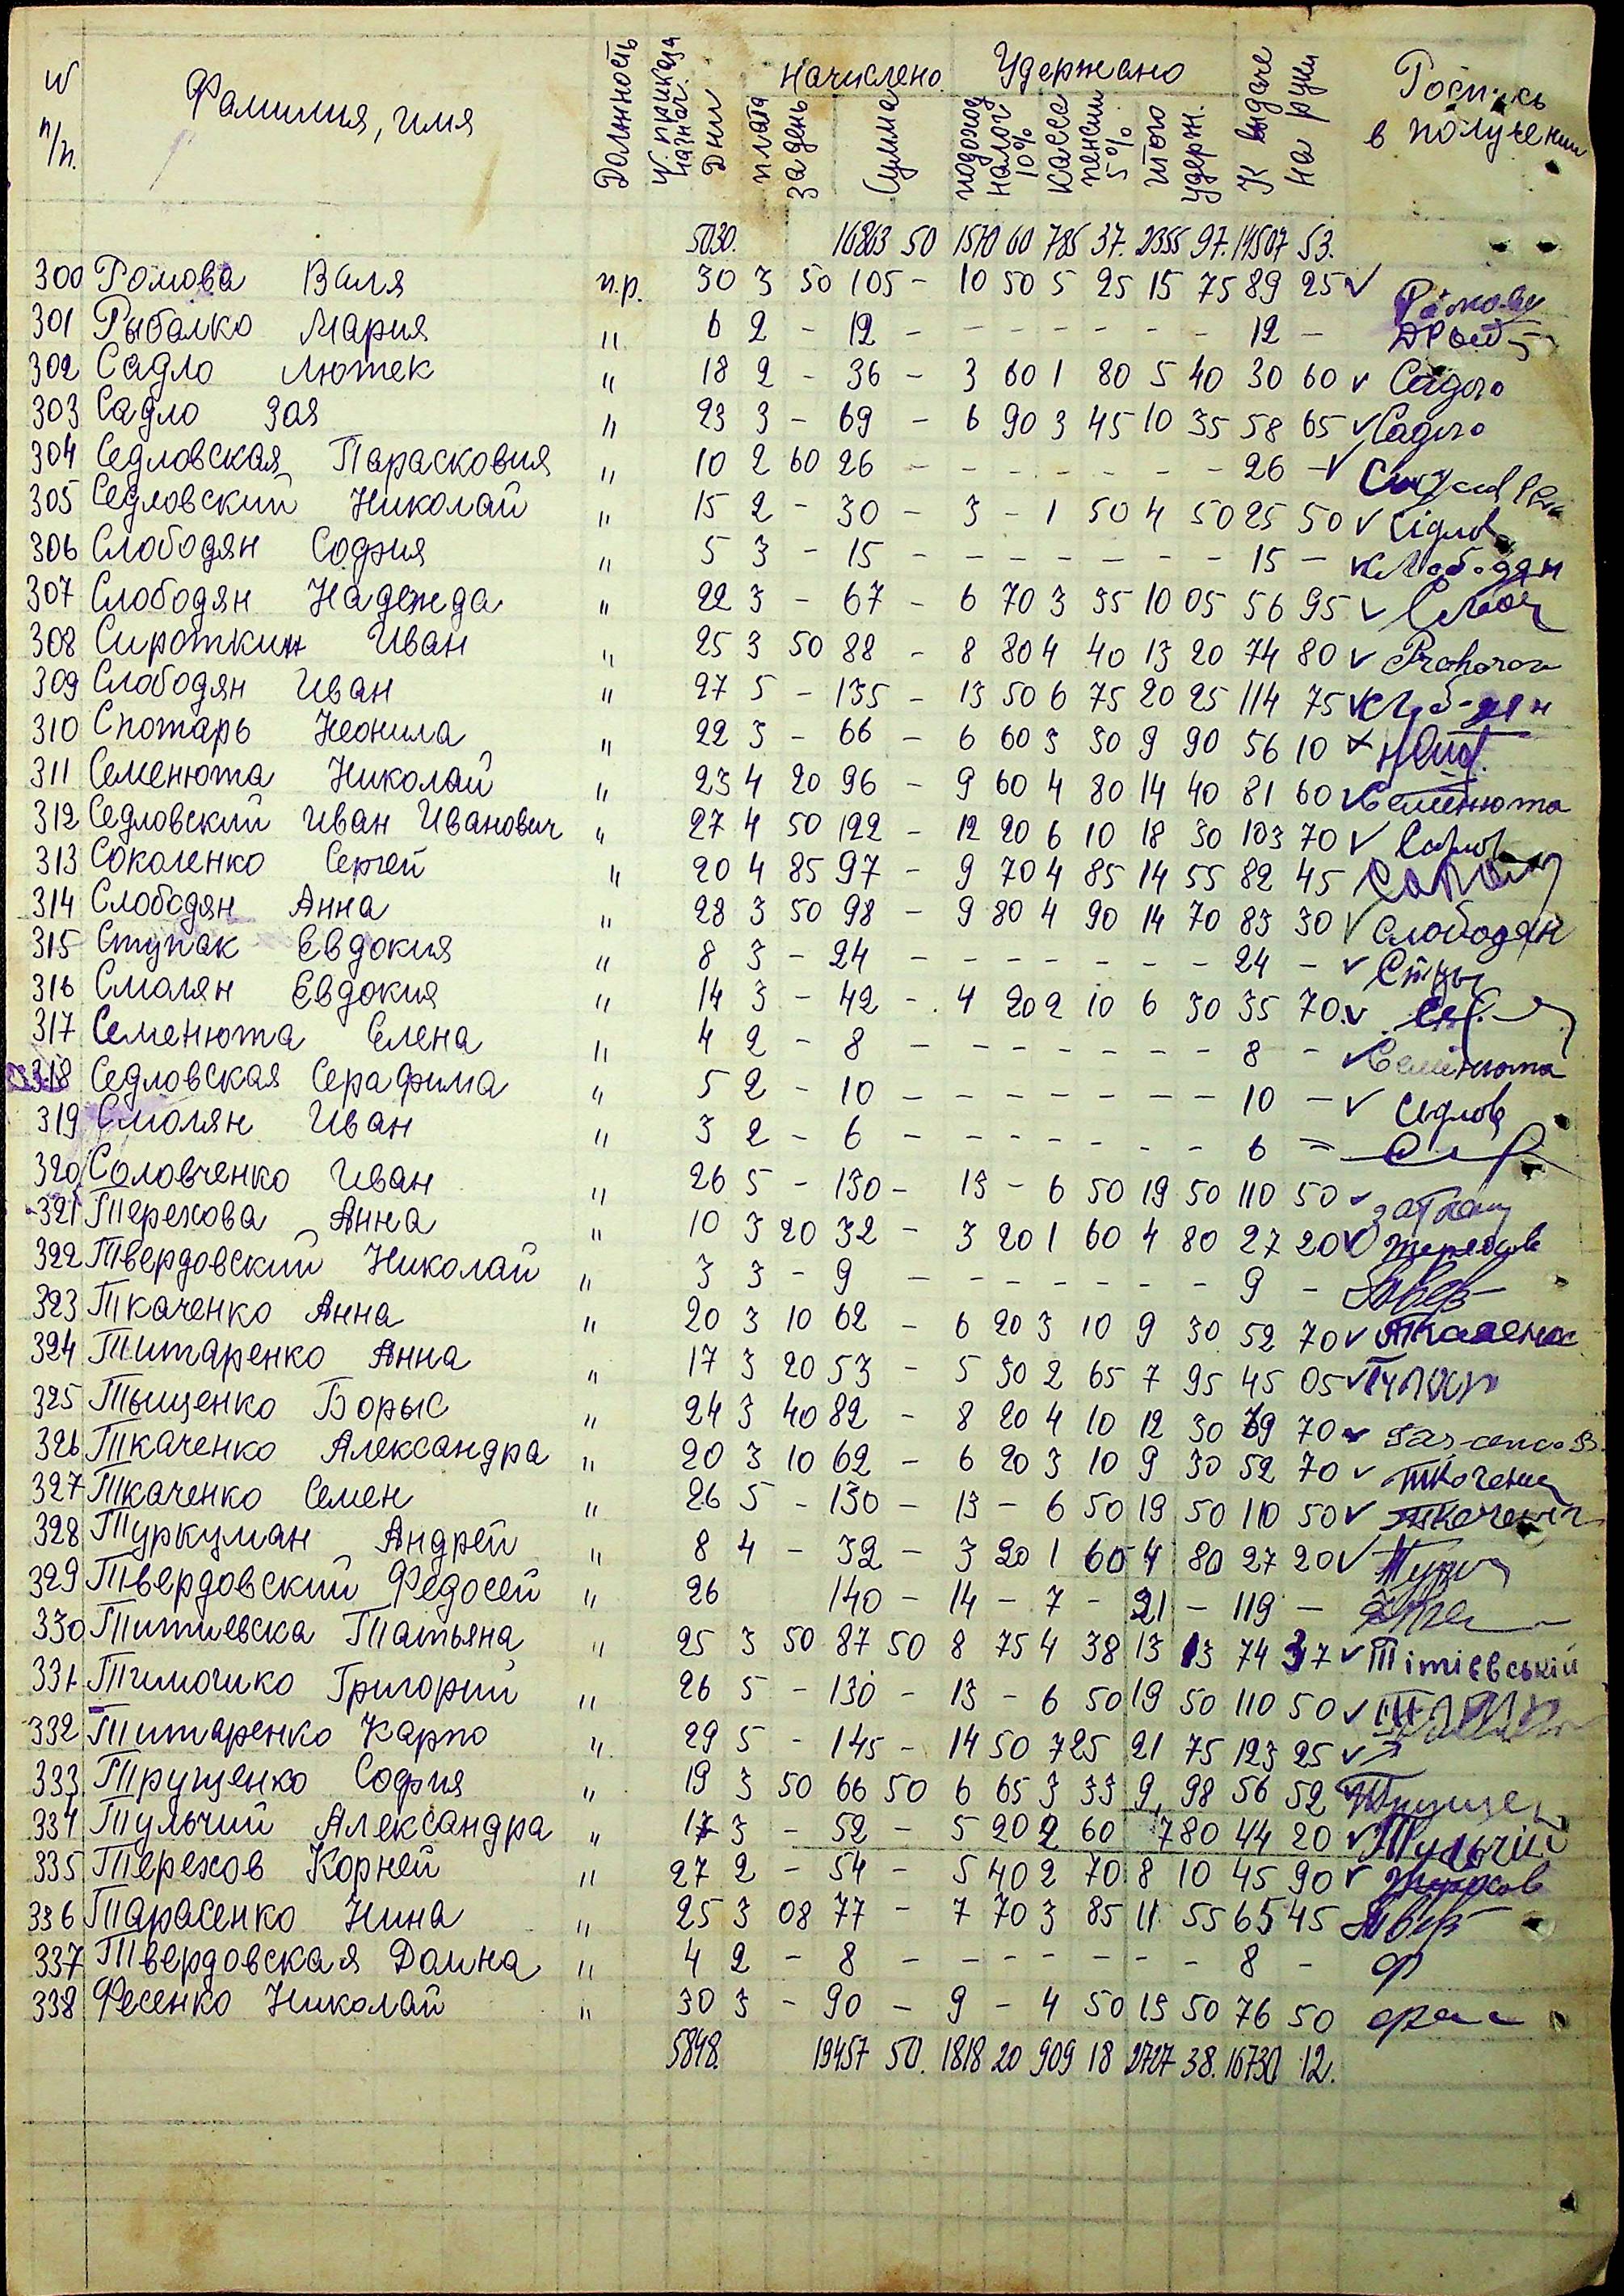 N п/п. Фамилия, имя Должность N. приказа назнач. Дни плата за день Начислено. Сумма Удержано подоход налог 10% касса пенсии 5% итого удерж. К выдаче на руки Роспись в получении
5030. 16863 50 1570 60 785 37. 2355 97. 14507 53.
300 Ромова Валя п.р. 30 3 50 105 - 10 50 5 25 15 75 89 25 v
301 Рыбалко Мария " 6 2 - 12 - - - - - - - 12 -
302 Садло Лютек " 18 2 - 36 - 3 60 1 80 5 40 30 60 v Садло
303 Садло Зоя " 23 3 - 69 - 6 90 3 45 10 35 58 65 v Садло
304 Седловская Парасковия " 10 2 60 26 - - - - - - - 26 - v
305 Седловский Николай " 15 2 - 30 - 3 - 1 50 4 50 25 50 v Сідлов
306 Слободян София " 5 3 - 15 - - - - - - - 15 - v Слободян
307 Слободян Надежда " 22 3 - 67 - 6 70 3 35 10 05 56 95 v
308 Сироткин Иван " 25 3 50 88 - 8 80 4 40 13 20 74 80 v
309 Слободян Иван " 27 5 - 135 - 13 50 6 75 20 25 114 75 v
310 Спотарь Неонила " 22 3 - 66 - 6 60 3 30 9 90 56 10 v
311 Семенюта Николай " 23 4 20 96 - 9 60 4 80 14 40 81 60 v Семенюта
312 Седловский Иван Иванович " 27 4 50 122 - 12 20 6 10 18 30 103 70 v
313 Соколенко Сергей " 20 4 85 97 - 9 70 4 85 14 55 82 45
314 Слободян Анна " 28 3 50 98 - 9 80 4 90 14 70 83 30 v Слободян
315 Ступак Евдокия " 8 3 - 24 - - - - - - - 24 - v
316 Смолян Евдокия " 14 3 - 42 - 4 20 2 10 6 30 35 70 v
317 Семенюта Елена " 4 2 - 8 - - - - - - - 8 - v Семенюта
318 Седловская Серафима " 5 2 - 10 - - - - - - - 10 - v Седлов
319 Смолян Иван " 3 2 - 6 - - - - - - - 6 =
320 Соловченко Иван " 26 5 - 130 - 13 - 6 50 19 50 110 50 v
321 Терехова Анна " 10 3 20 32 - 3 20 1 60 4 80 27 20 v
322 Твердовский Николай " 3 3 - 9 - - - - - - - 9 -
323 Ткаченко Анна " 20 3 10 62 - 6 20 3 10 9 30 52 70 v Ткаченко
324 Титаренко Анна " 17 3 20 53 - 5 30 2 65 7 95 45 05 v
325 Тыщенко Борыс " 24 3 40 82 - 8 20 4 10 12 30 69 70 v
326 Ткаченко Александра " 20 3 10 62 - 6 20 3 10 9 30 52 70 v
327 Ткаченко Семен " 26 5 - 130 - 13 - 6 50 19 50 110 50 v
328 Туркуман Андрей " 8 4 - 32 - 3 20 1 60 4 80 27 20 v
329 Твердовский Федосей " 26 140 - 14 - 7 - 21 - 119 -
330 Титиевска Татьяна " 25 3 50 87 50 8 75 4 38 13 13 74 37 v Тітієвській
331 Тимошко Григорий " 26 5 - 130 - 13 - 6 50 19 50 110 50 v
332 Титаренко Карпо " 29 5 - 145 - 14 50 7 25 21 75 123 25 v
333 Трущенко София " 19 3 50 66 50 6 65 3 33 9, 98 56 52
334 Тульчий Александра " 17 3 - 52 - 5 20 2 60 7 80 44 20 v Тульчій
335 Терехов Корней " 27 2 - 54 - 5 40 2 70 8 10 45 90 v
336 Тарасенко Нина " 25 3 08 77 - 7 70 3 85 11 55 65 45
337 Твердовская Домна " 4 2 - 8 - - - - - - - 8 -
338 Фесенко Николай " 30 3 - 90 - 9 - 4 50 13 50 76 50
5848. 19457 50. 1818 20 909 18 2727 38. 16730 12.